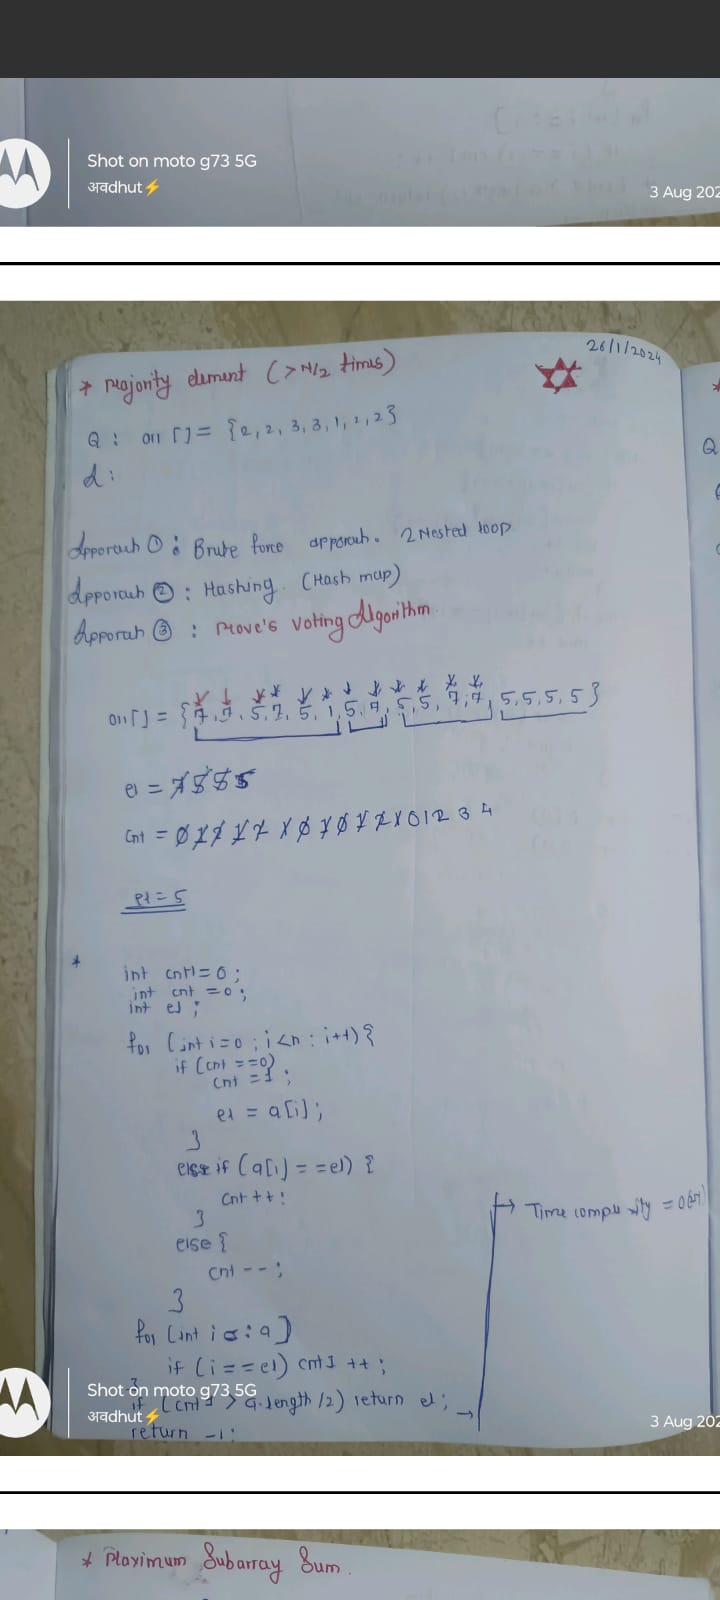 Shot on moto g73 5G
अवdhut⚡
3 Aug 202
26/1/2024
* Majority element (> N/2 times)
Q : arr [] = {2, 2, 3, 3, 1, 2, 2}
Q
Apporach ① : Brute force apporach. 2 Nested loop
Apporach ② : Hashing. (Hash map)
Apporah ③ : Move's Voting Algorithm
arr [] = {7, 7, 5, 7, 5, 1, 5, 7, 5, 5, 7, 7, 5, 5, 5, 5}
el = 7 5 5 5
Cnt =
el = 5
*
int cnt1 = 0 ;
int cnt = 0 ;
int el ;
for (int i = 0 ; i < n ; i++) {
if (cnt == 0)
cnt = 1 ;
el = a[i] ;
}
else if (a[i] == el) {
cnt ++ ;
}
else {
cnt -- ;
}
for (int i : a)
if (i == el) cnt1 ++ ;
}
if (cnt1 > a.length /2) return el ;
return -1 ;
→ Time complexity =
Shot on moto g73 5G
अवdhut⚡
3 Aug 202
* Maximum Subarray Sum.